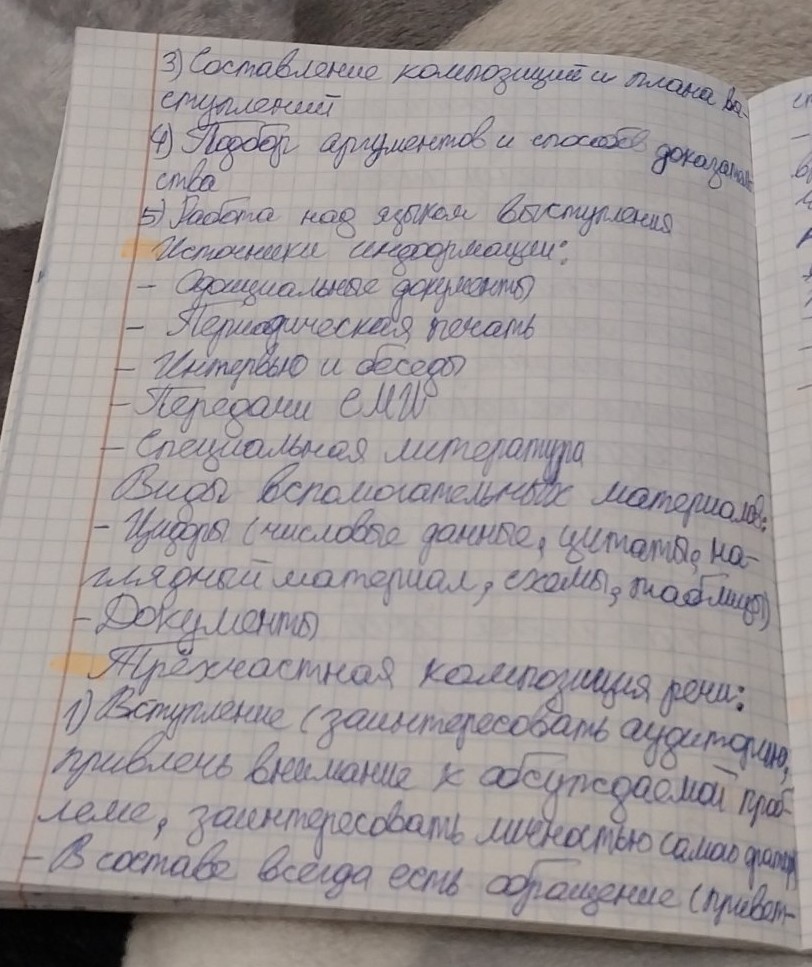 3) Составление композиций и плана вы-
ступлений
4) Подбор аргументов и способов доказатель-
ства
5) Работа над языком выступления
Источники информации:
- Официальные документы
- Периодическая печать
- Интервью и беседы
- Передачи СМИ
- Специальная литература
Виды вспомогательных материалов:
- Цифры (числовые данные, цитаты, на-
глядный материал, схемы, таблицы)
- Документы
Трёхчастная композиция речи:
1) Вступление (заинтересовать аудиторию,
привлечь внимание к обсуждаемой проб-
леме, заинтересовать личностью самого
- В составе всегда есть обращение (привет-